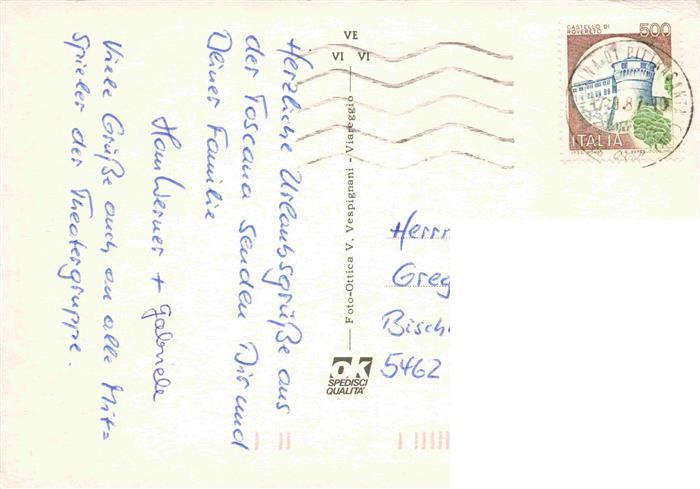 Herzliche Urlaubsgrüße aus
der Toscana senden Dir und
Deiner Familie
Hans Werner + Gabriele
Viele Grüße auch an alle Mit=
spieler der Theatergruppe.
VE
VI VI
Foto-Ottica V. Vespignani - Viareggio
ok
SPEDISCI
QUALITA'
CASTELLO DI
ROVERETO
500
ITALIA
Herrn
Greg
Bisch
5462